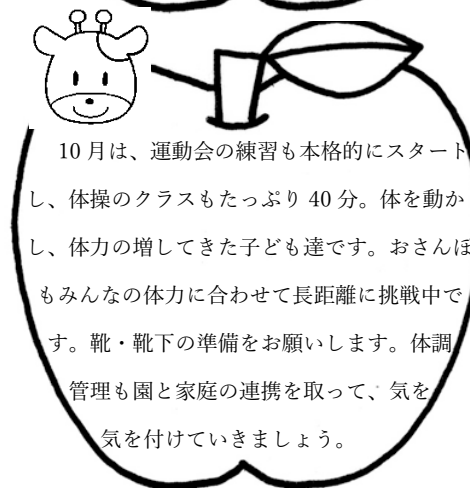 10 月は、運動会の練習も本格的にスタート
し、体操のクラスもたっぷり 40 分。体を動か
し、体力の増してきた子ども達です。おさんぽ
もみんなの体力に合わせて長距離に挑戦中で
す。靴・靴下の準備をお願いします。体調
管理も園と家庭の連携を取って、気を
気を付けていきましょう。